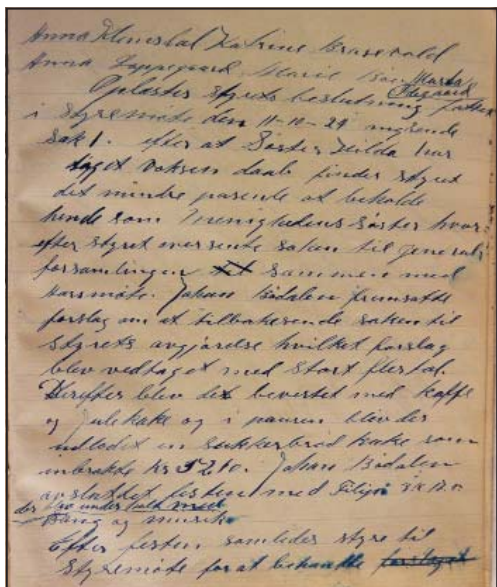 Anna Klemetdal Katrine Brasevold
Anna Loppegaard Marie Boe Marta Ødegaard
Oplæster styrets beslutning fattet
i styremøte den 11-10-29 angående
sak 1. efter at Søster Hilda har
taget voksen daab finder styret
det mindre passende at beholde
hende som menighedens søster hvor
efter styret oversente saken til general
forsamlingen sammen med
aarsmøte. Johan Bødalen fremsatte
forslag om at tilbakesende saken til
styrets avgjørelse hvilket forslag
blev vedtaget med stort flertal.
Derefter blev det bevertet med kaffe
og julekake og i pausen blev der
utlodet en sukkerbrød kake som
inbrakte kr 52.10. Johan Bødalen
avsluttet festen med Filip
der blev underholdt med
sang og musik
Efter festen samledes styre til
styremøte for at behandle forslaget